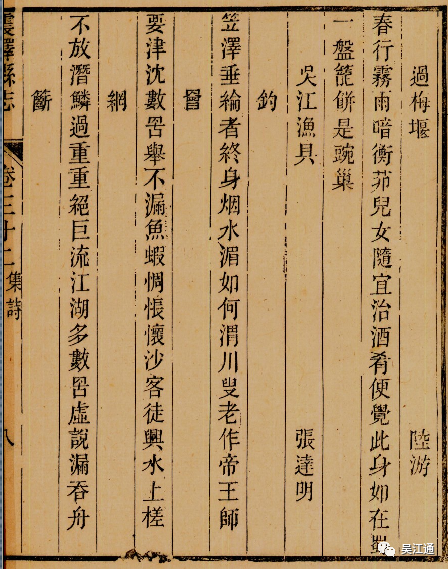 過梅堰 陸游
春行霧雨暗衡茆兒女隨宜治酒肴便覺此身如在蜀
一盤籠餅是豌巢
吴江漁具 張達明
釣
笠澤垂綸者終身烟水湄如何渭川叟老作帝王師
罾
要津沈數罟舉不漏魚蝦惆悵懷沙客徒興水上槎
網
不放潛鱗過重重絕巨流江湖多數罟虛說漏吞舟
簖
震澤縣志 卷三十二 集詩 八
吴江通